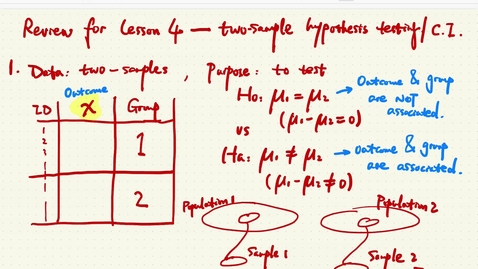 Review for Lesson 4 — two-sample hypothesis testing / C.I.
1. Data: two-samples, Purpose: to test
Outcome
ID x Group
1
2
3
1
2
H0: μ1 = μ2 → Outcome & group are NOT associated.
(μ1-μ2=0)
vs
Ha: μ1 ≠ μ2 → Outcome & group are associated.
(μ1-μ2≠0)
Population 1
Population 2
Sample 1
Sample 2